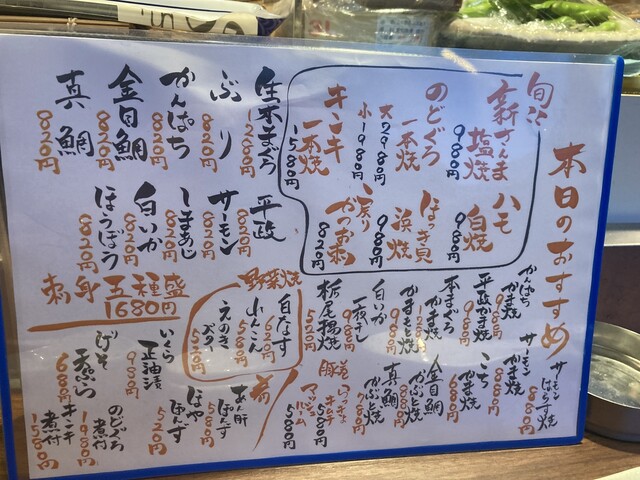 本日のおすすめ
旬に
新さんま
塩焼
980円
のどぐろ
一本焼
大2980円
小1980円
キンキ
一本焼
1580円
ハモ
白焼
980円
ほっき貝
浜焼
980円
戻り
かつお刺
820円
生本まぐろ
1200円
ぶり
820円
かんぱち
820円
金目鯛
820円
真鯛
820円
平政
820円
サーモン
820円
しまあじ
820円
白いか
820円
ほうぼう
820円
刺身五種盛
1680円
かんぱち
かま焼
平政かま焼
本まぐろ
かま焼
かまとろ焼
白いか
一夜干し
980円
栃尾揚焼
520円
サーモン
はらす焼
880円
サーモン
かま焼
880円
こち
かま焼
680円
金目鯛
かぶと焼
880円
真鯛
かぶと焼
780円
野菜焼
白なす
620円
小んにこん
580円
えのき
バター
520円
豚巻
キムチ
580円
マッシュルーム
580円
肴
あん肝
ぽんず
580円
ほや
ぽんず
520円
いくら
正油漬
980円
しそ
天ぷら
680円
のどぐろ
煮付
1980円
キンキ
煮付
1580円